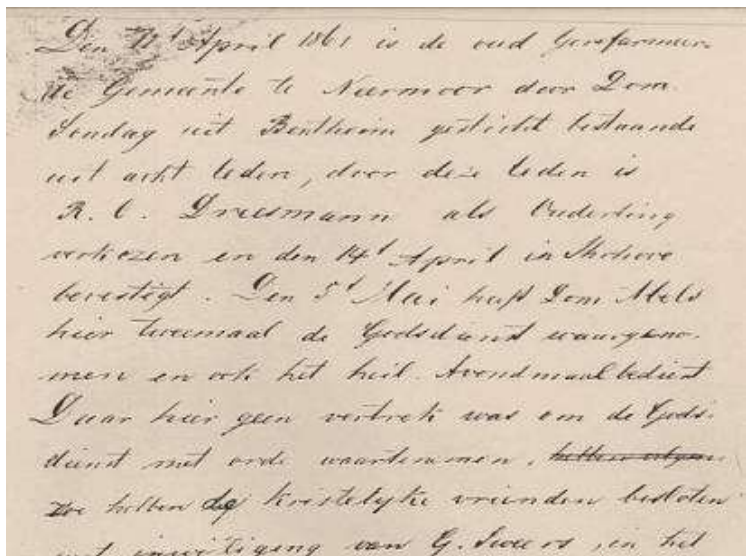 Den 11t April 1861 is de oud Gereformeer-
de Gemeente te Neermoor door Dom.
Sundag uit Bentheim gesticht bestaande
uit acht leden, door deze leden is
R. C. Dreesmann als Ouderling
verkozen en den 14t April in Ihrhove
bevestigt. Den 5t Mai heeft Dom. Stels
hier tweemaal de Godsdienst waargeno-
men en ook het heil. Avondmaal bedient
Daar hier geen vertrek was om de Gods-
dienst met orde waartenemen,
zoo hebben de kristelyke vrienden besloten
met inwilliging van G. , in het